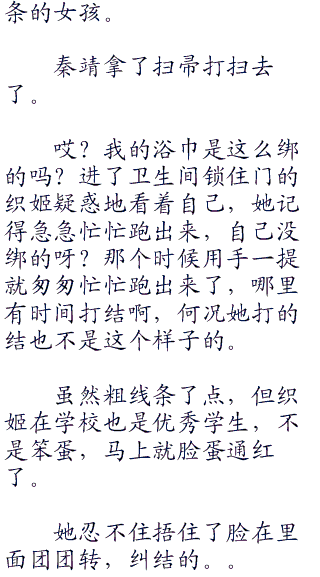 条的女孩。
秦靖拿了扫帚打扫去
了。
哎？我的浴巾是这么绑
的吗？进了卫生间锁住门的
织姬疑惑地看着自己，她记
得急急忙忙跑出来，自己没
绑的呀？那个时候用手一提
就匆匆忙忙跑出来了，哪里
有时间打结啊，何况她打的
结也不是这个样子的。
虽然粗线条了点，但织
姬在学校也是优秀学生，不
是笨蛋，马上就脸蛋通红
了。
她忍不住捂住了脸在里
面团团转，纠结的。。